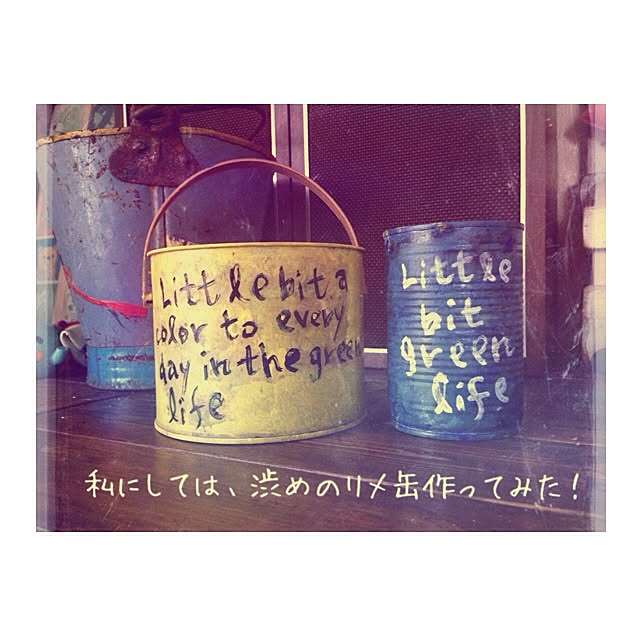 Little bit a
color to every
day in the green
life
Little
bit
green
life
私にしては、渋めのリメ缶作ってみた!